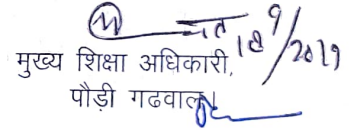 18/9/2019
मुख्य शिक्षा अधिकारी,
पौड़ी गढवाल।